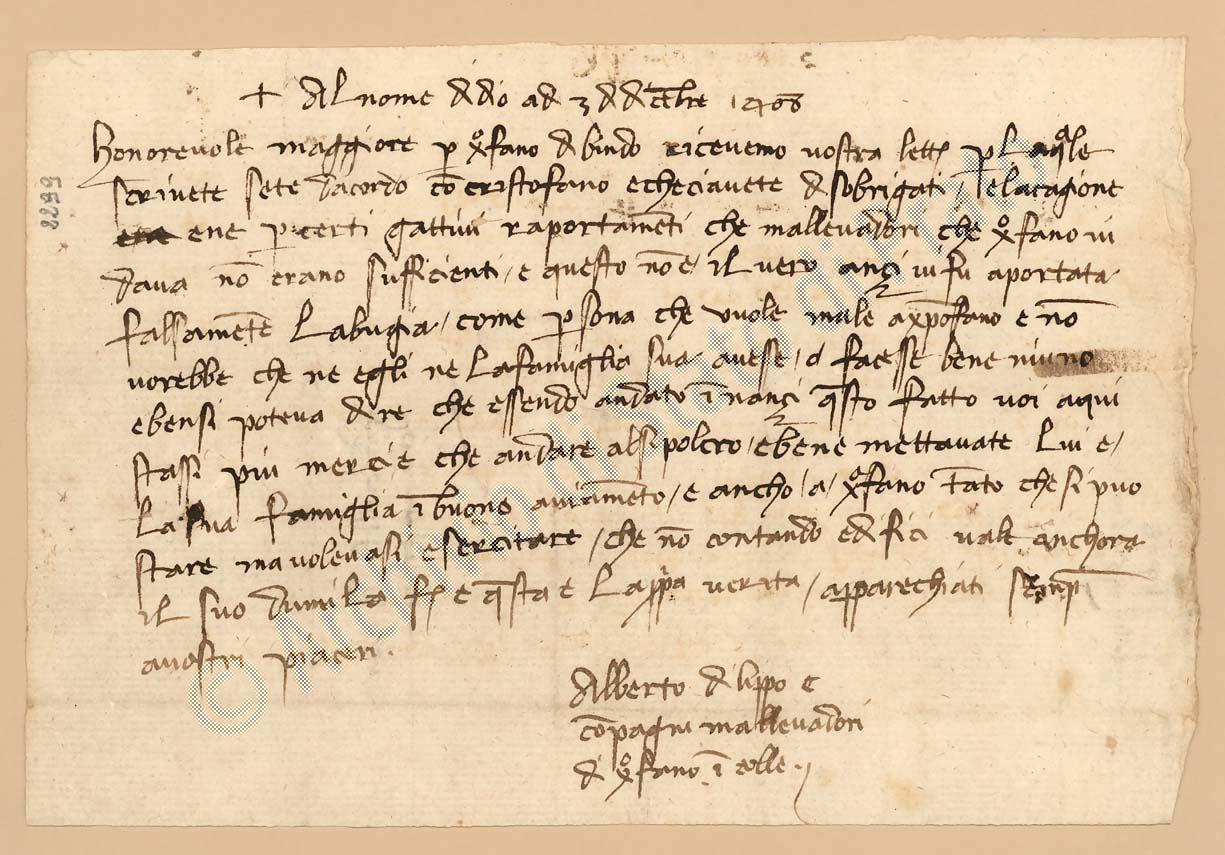 + Al nome didio ad 3 di dicēbre 1408
Honorevole maggiore p xōfano di bindo ricevemo vostra letta p laqle
scrivete sete dacordo cō cristofano echeciavete disobrigati / elacagione
ene p certi gattivi raportamēti che mallevadori che xōfano vi
dava nō erano sufficienti / e questo nō e / il vero ançi vi fu aportata
falsamēte labugia / come psona che vuole male axpōfano e nō
vorebbe che ne egli ne lafamiglia sua avese / o facesse bene niuno
ebensi poteva dire che essendo andato ī nançi qsto fatto voi aqui
stassi piu mercie che andare alsipolcro / ebene mettavate lui e /
la sua famiglia ī buono aviamēto / e ancho / a / xōfano tāto che si puo
stare ma volevasi esercitare / che nō contando edifici vale anchora
il suo dumila f e qsta e la ppa verita / apparechiati semp
avostri piaceri .
Alberto di lippo e
cōpagni mallevadori
di xōfano ī colle .
2299